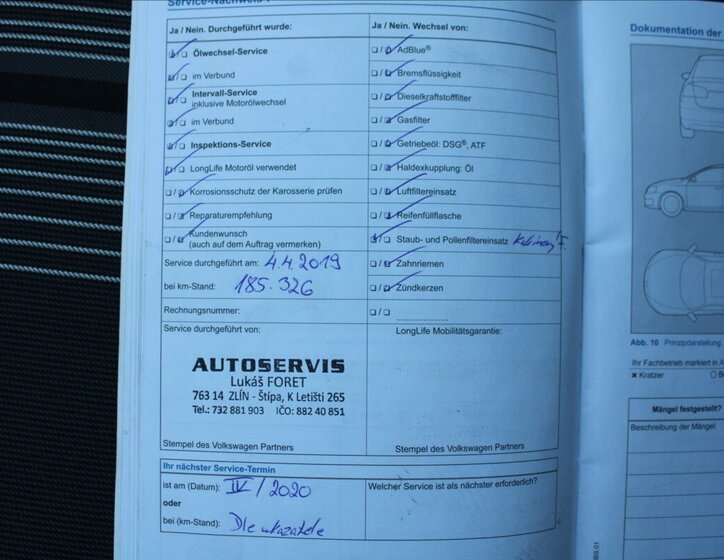 Service-Nachweis
Ja / Nein. Durchgeführt wurde:
Ölwechsel-Service
im Verbund
Intervall-Service
inklusive Motorölwechsel
im Verbund
Inspektions-Service
LongLife Motoröl verwendet
Korrosionsschutz der Karosserie prüfen
Reparaturempfehlung
Kundenwunsch
(auch auf dem Auftrag vermerken)
Service durchgeführt am: 4.4.2019
bei km-Stand: 185.326
Rechnungsnummer:
Service durchgeführt von:
AUTOSERVIS
Lukáš FORET
763 14 ZLÍN - Štípa, K Letišti 265
Tel.: 732 881 903 IČO: 882 40 851
Stempel des Volkswagen Partners
Ja / Nein. Wechsel von:
AdBlue®
Bremsflüssigkeit
Dieselkraftstofffilter
Gasfilter
Getriebeöl: DSG®, ATF
Haldexkupplung: Öl
Luftfiltereinsatz
Reifenfüllflasche
Staub- und Pollenfiltereinsatz
Zahnriemen
Zündkerzen
LongLife Mobilitätsgarantie:
Stempel des Volkswagen Partners
Ihr nächster Service-Termin
ist am (Datum): IV/2020
oder
bei (km-Stand): Dle ukazatele
Welcher Service ist als nächster erforderlich?
Dokumentation der
Abb. 10 Prinzipdarstellung
Ihr Fachbetrieb markiert in A
Kratzer
Mängel festgestellt?
Beschreibung der Mängel: